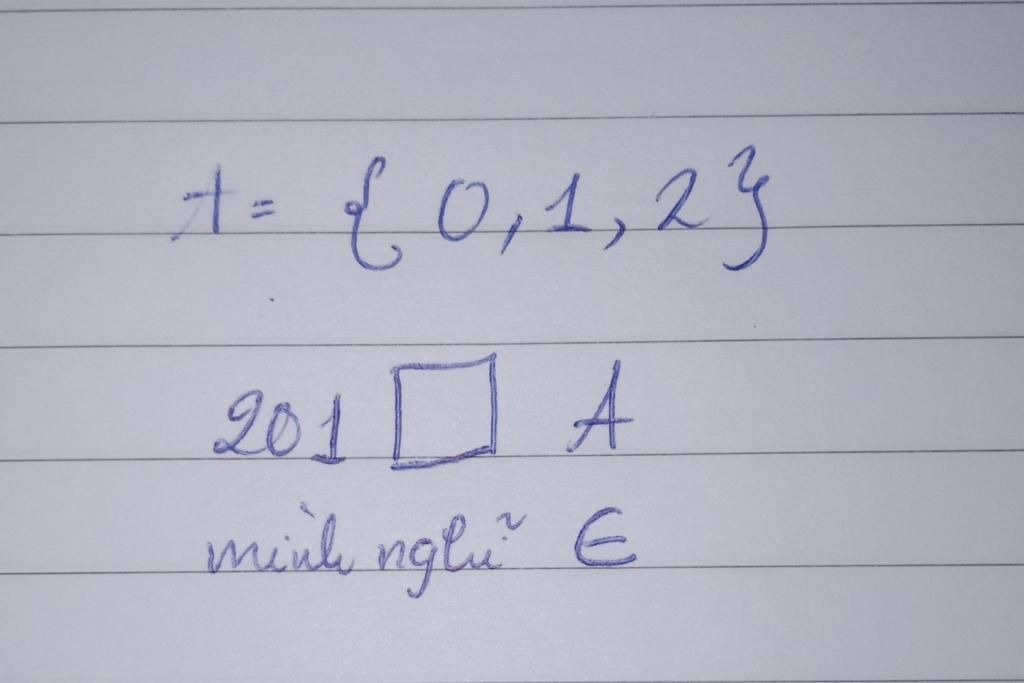 A = { 0, 1, 2 }
201 □ A
mình nghĩ ∈